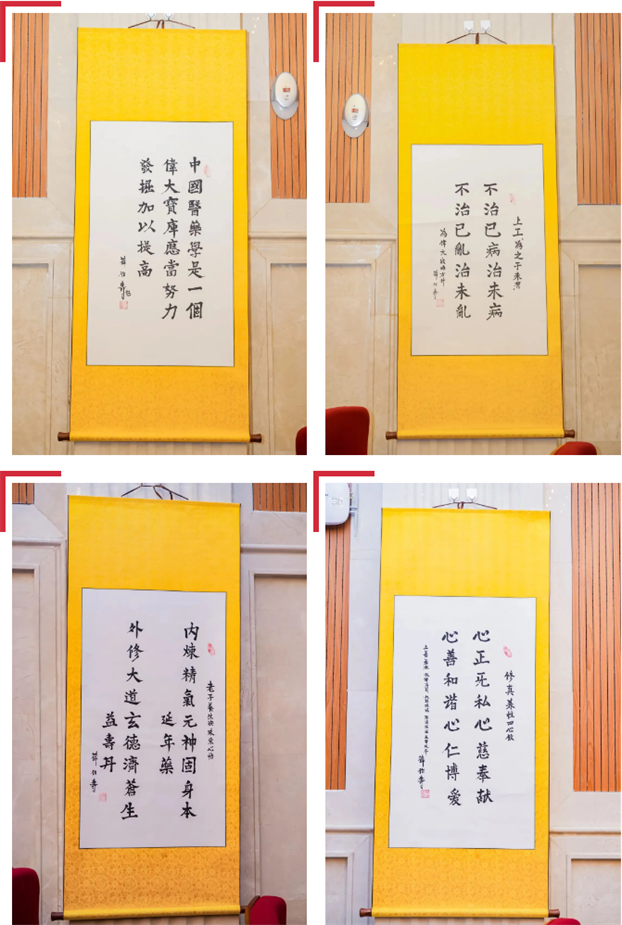 中國醫藥學是一個
偉大寶庫應當努力
發掘加以提高
薛伯壽
上工為之于未有
不治已病治未病
不治已亂治未亂
薛伯壽
內煉精氣元神固身本
延年藥
外修大道玄德濟蒼生
益壽丹
薛伯壽
修真養性四心飲
心正無私心慈奉献
心善和谐心仁博愛
薛伯壽